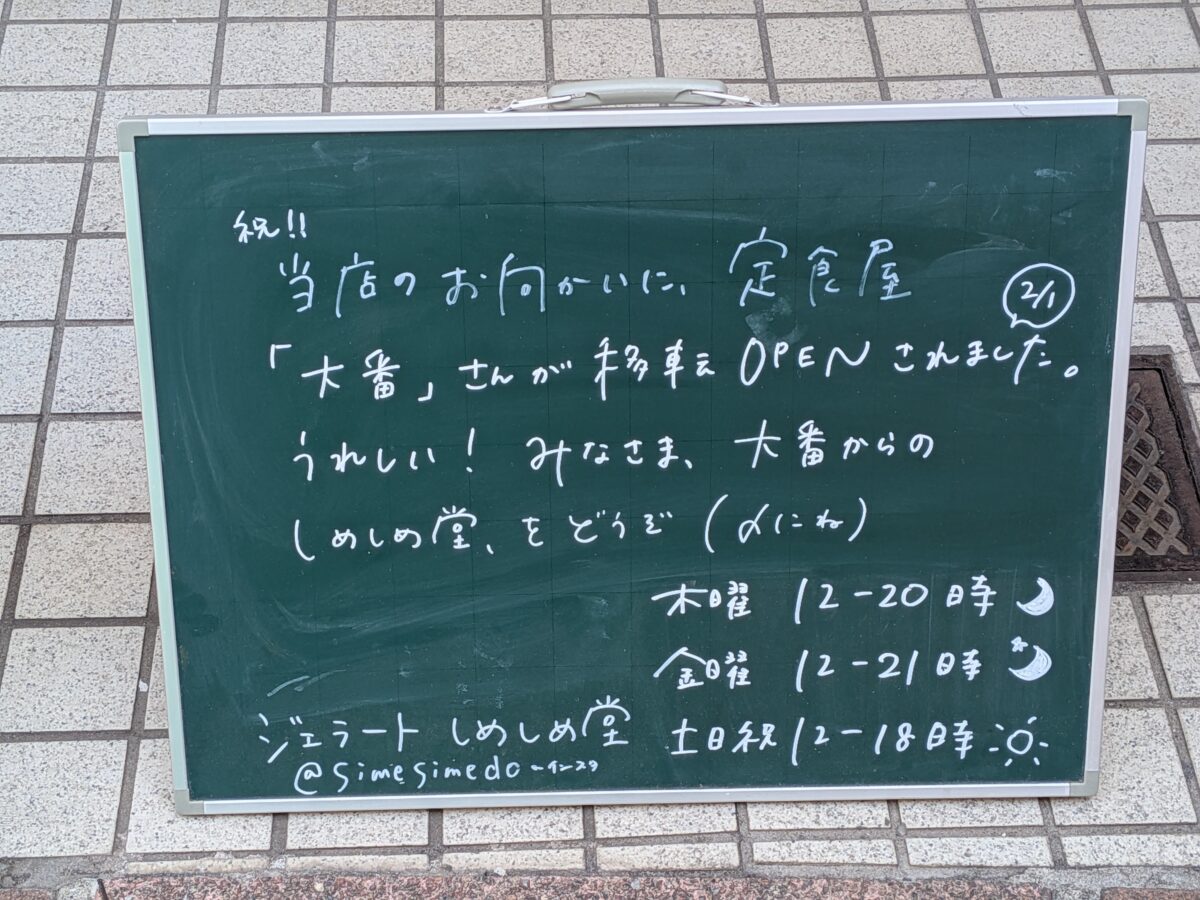 祝!!
当店のお向かいに、定食屋
2/1
「大番」さんが移転OPENされました。
うれしい! みなさま、大番からの
しめしめ堂、をどうぞ(〆にね)
木曜 12-20時
金曜 12-21時
土日祝 12-18時
ジェラート しめしめ堂
@simesimedo ~インスタ